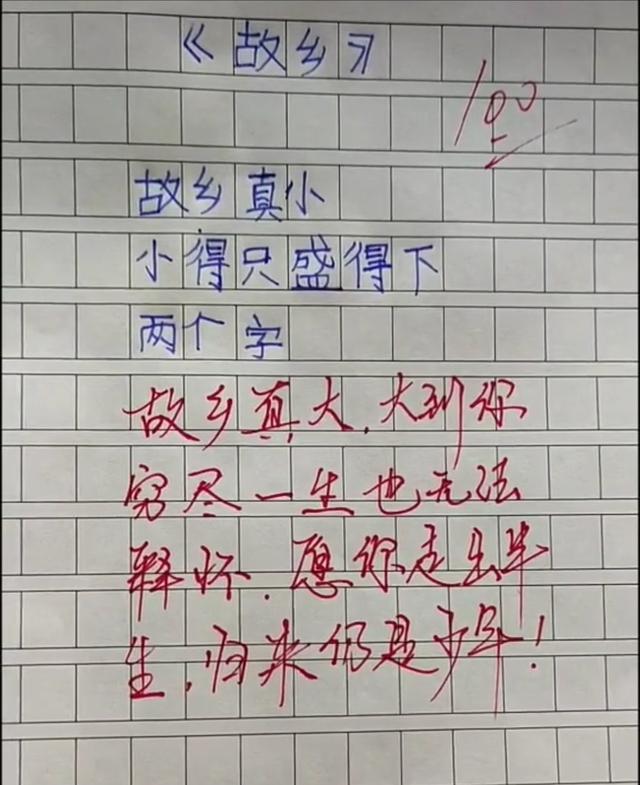 《故乡》
100
故乡真小
小得只盛得下
两个字
故乡真大,大到你
穷尽一生也无法
释怀.愿你走出半
生,归来仍是少年!